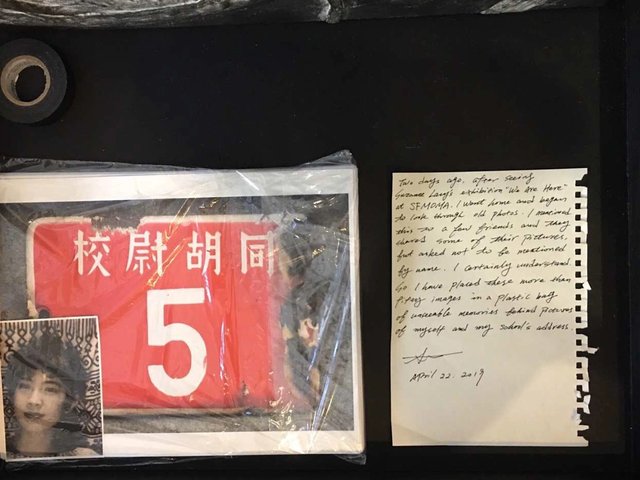 校尉胡同
5
Two days ago, after seeing
Suzanne Lacy's exhibition "We Are Here"
at SFMOMA. I went home and began
to look through old photos. I mentioned
this to a few friends and they
shared some of their pictures,
but asked not to be mentioned
by name. I certainly understand.
So I have placed these more than
fifty images in a plastic bag
of memories behind pictures
of myself and my school's address.
April 22. 2019